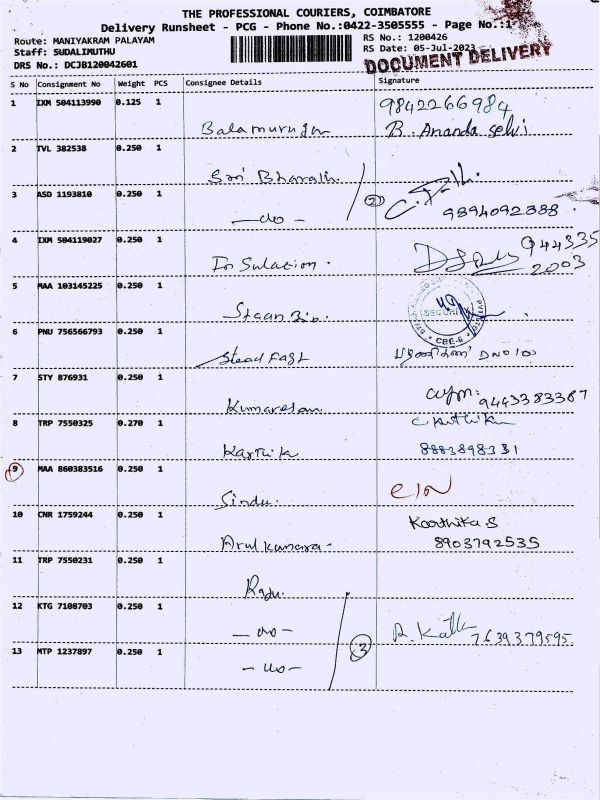 THE PROFESSIONAL COURIERS, COIMBATORE
Delivery Runsheet - PCG - Phone No.:0422-3505555 - Page No.:1
Route: MANIYAKRAM PALAYAM
RS No.: 1200426
Staff: SUDALIMUTHU
RS Date: 05-Jul-2023
DRS No.: DCJB120042601
DOCUMENT DELIVERY
S No Consignment No Weight PCS Consignee Details Signature
1 IXM 504113990 0.125 1
9842266984
Balamurugan B. Ananda Selvi
2 TVL 382538 0.250 1
Sri Bharath
3 ASD 1193810 0.250 1
2
—do— 9894092388
4 IXM 504119027 0.250 1
944335
Insulation. 2003
5 MAA 103145225 0.250 1
SECURITY
Staan Bio. CBE-6
6 PNU 756566793 0.250 1
Stead Fast பழனிச்சாமி
7 STY 876931 0.250 1
Kumaresan 9443383387
8 TRP 7550325 0.270 1
C Karthik
Karthik 8883898331
9 MAA 860383516 0.250 1
Sindu.
10 CNR 1759244 0.250 1
Karthika S
Arulkumara- 8903792535
11 TRP 7550231 0.250 1
Raju.
12 KTG 7108703 0.250 1
—do— 7639379595
3
13 MTP 1237897 0.250 1
—do—